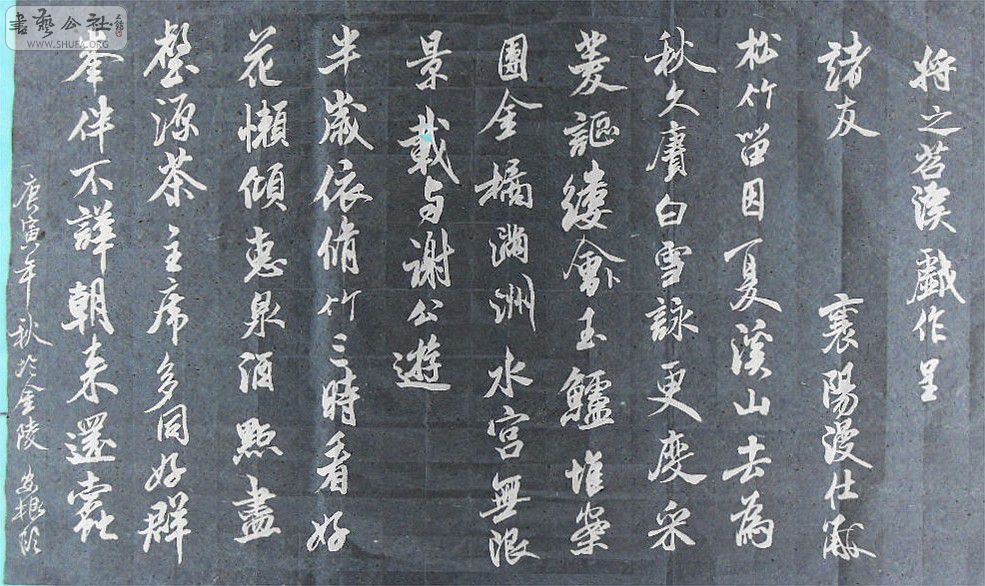 将之苕溪戲作呈
諸友 襄陽漫仕黻
松竹留因夏溪山去為
秋久賡白雪詠更度采
菱謳縷會玉鱸堆案
團金橘滿洲水宮無限
景載与謝公遊
半歲依脩竹三時看好
花懶傾惠泉酒點盡
壑源茶主席多同好群
峯伴不譁朝来還蠹
庚寅年秋於金陵
書藝公社
WWW.SHUFA.ORG